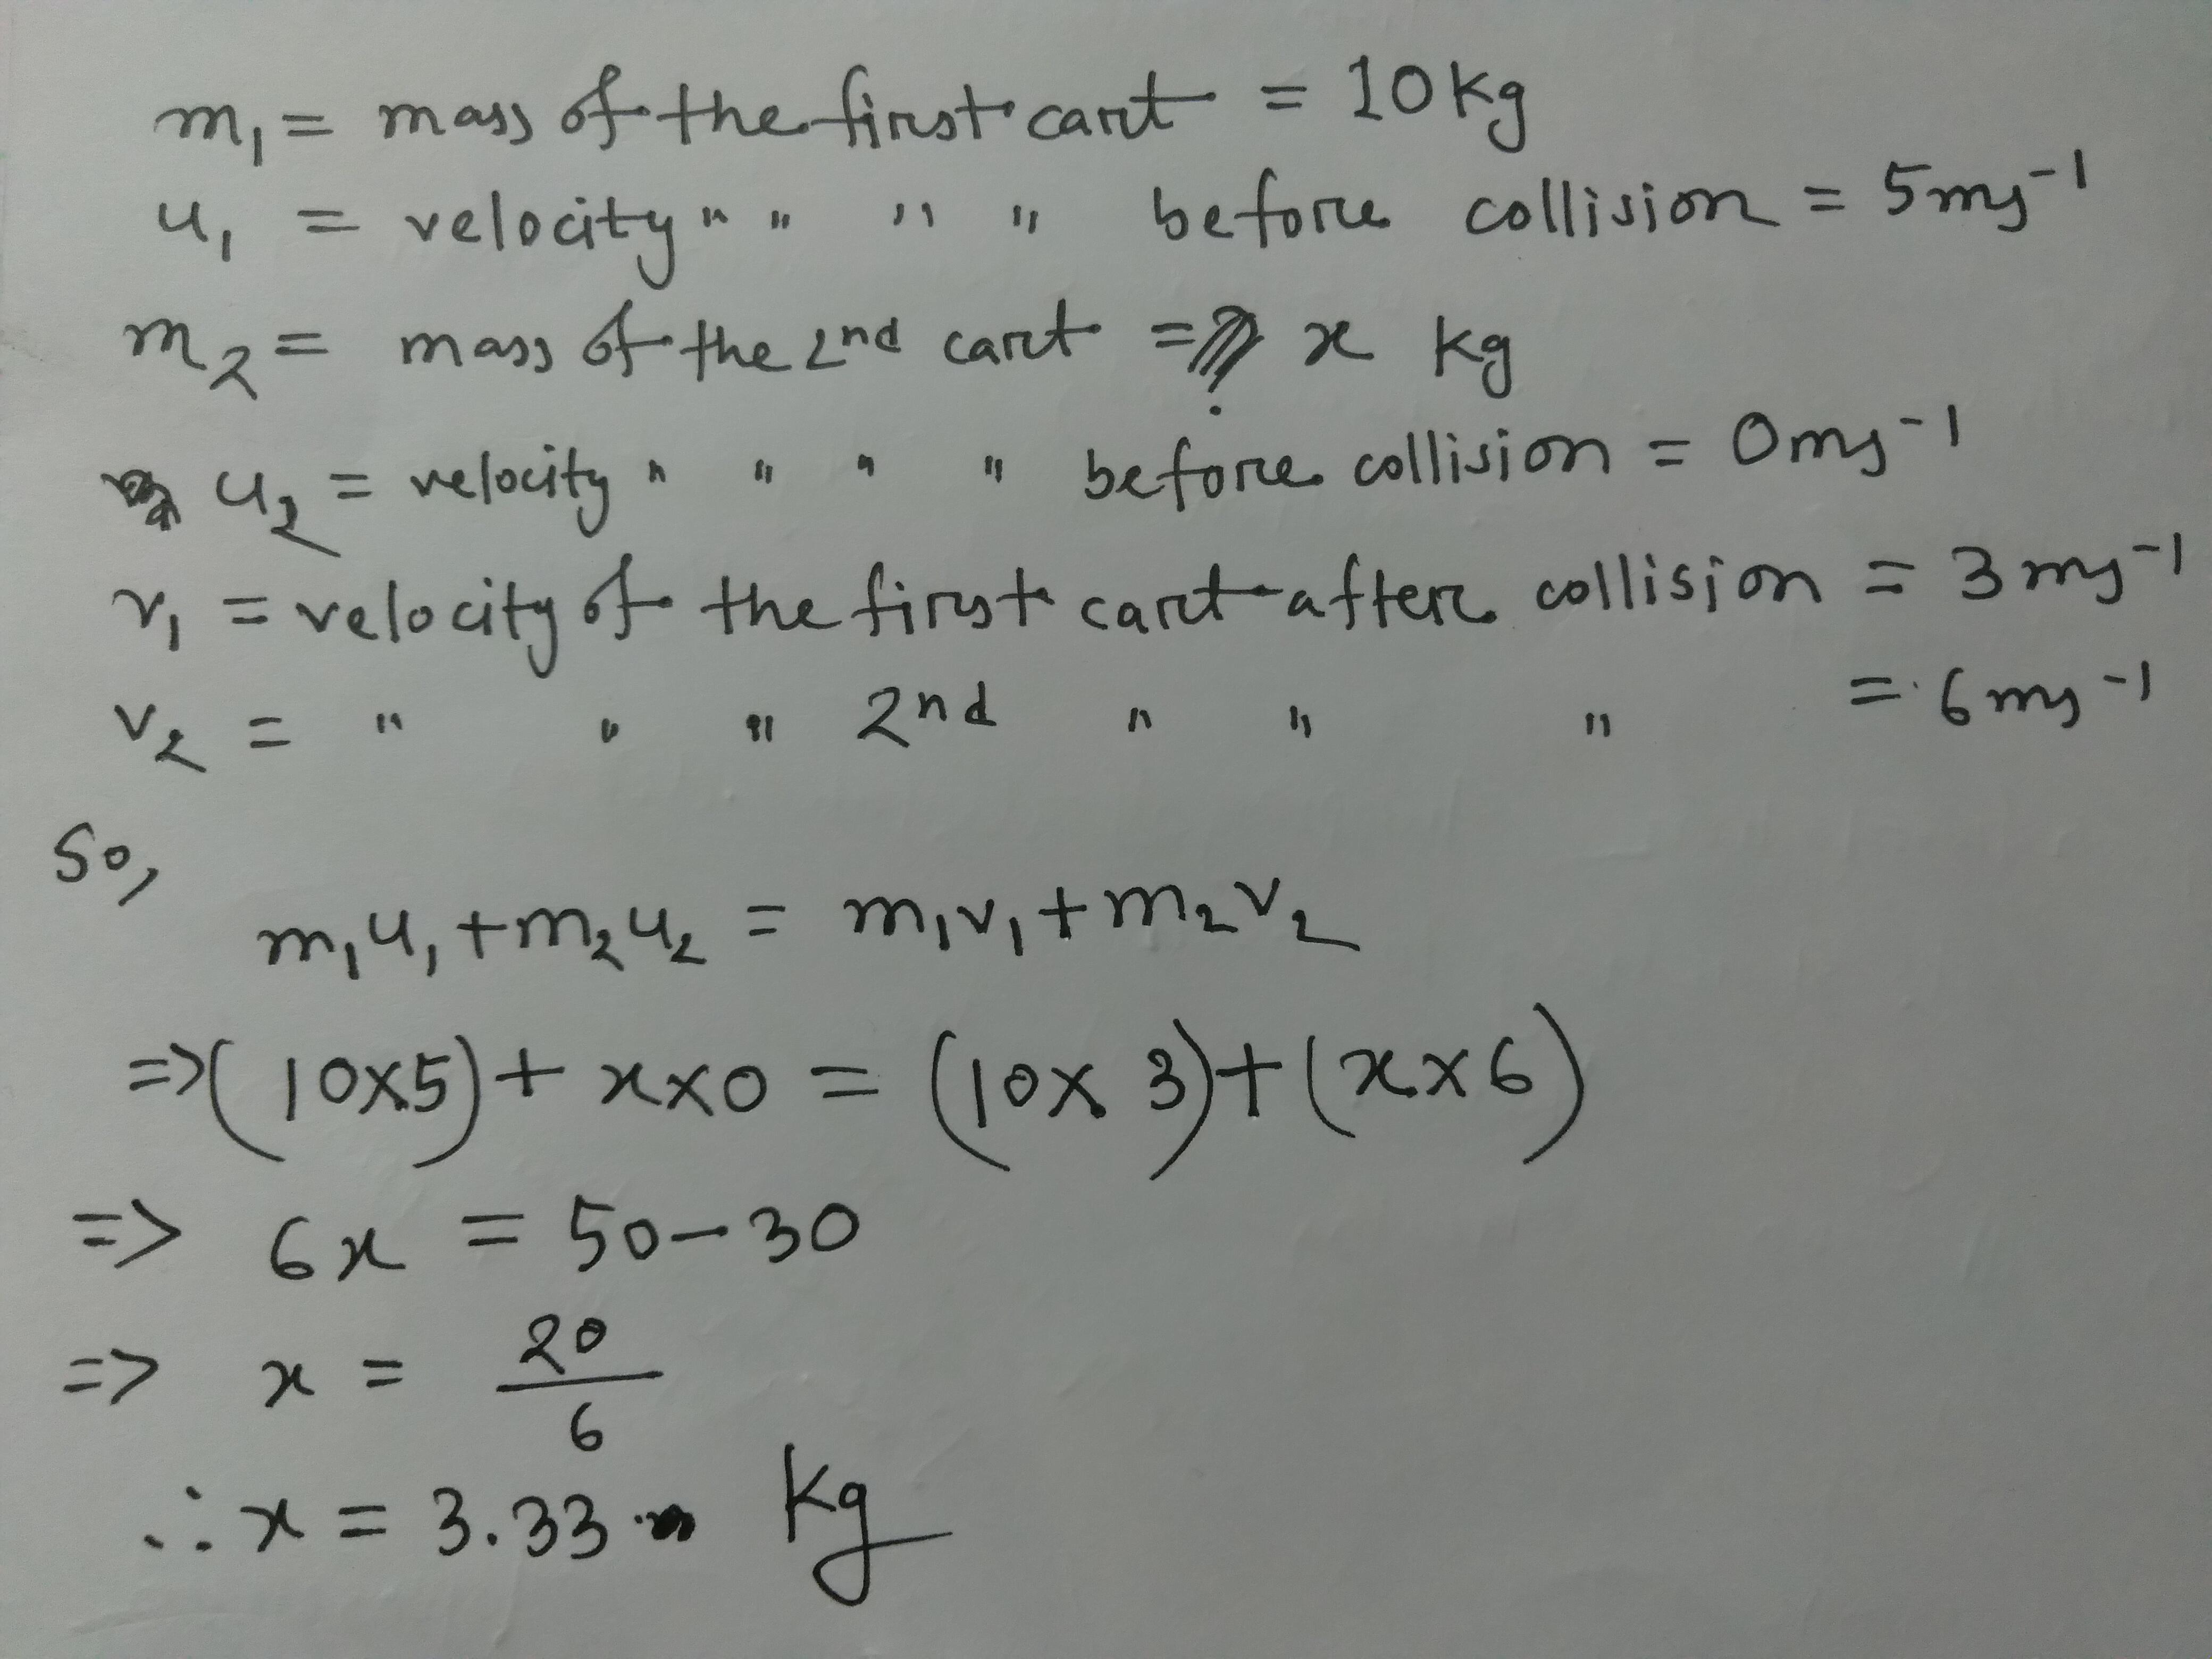 m₁ = mass of the first cart = 10 kg
u₁ = velocity " " " " before collision = 5 ms⁻¹
m₂ = mass of the 2nd cart = x kg
u₂ = velocity " " " " before collision = 0 ms⁻¹
v₁ = velocity of the first cart after collision = 3 ms⁻¹
v₂ = " " " 2nd " " " = 6 ms⁻¹
So,
m₁u₁ + m₂u₂ = m₁v₁ + m₂v₂
=> (10×5) + x×0 = (10×3) + (x×6)
=> 6x = 50 - 30
=> x = 20/6
∴ x = 3.33 kg